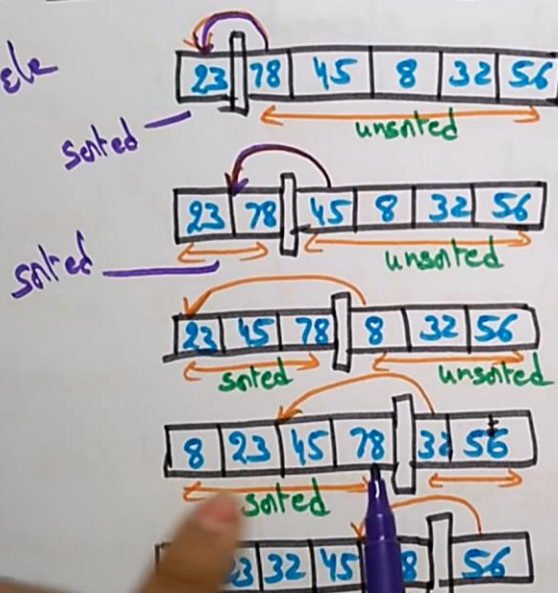 ele
23 78 45 8 32 56
sorted
unsorted
23 78 45 8 32 56
sorted
unsorted
23 45 78 8 32 56
sorted unsorted
8 23 45 78 32 56
sorted
32 45 56